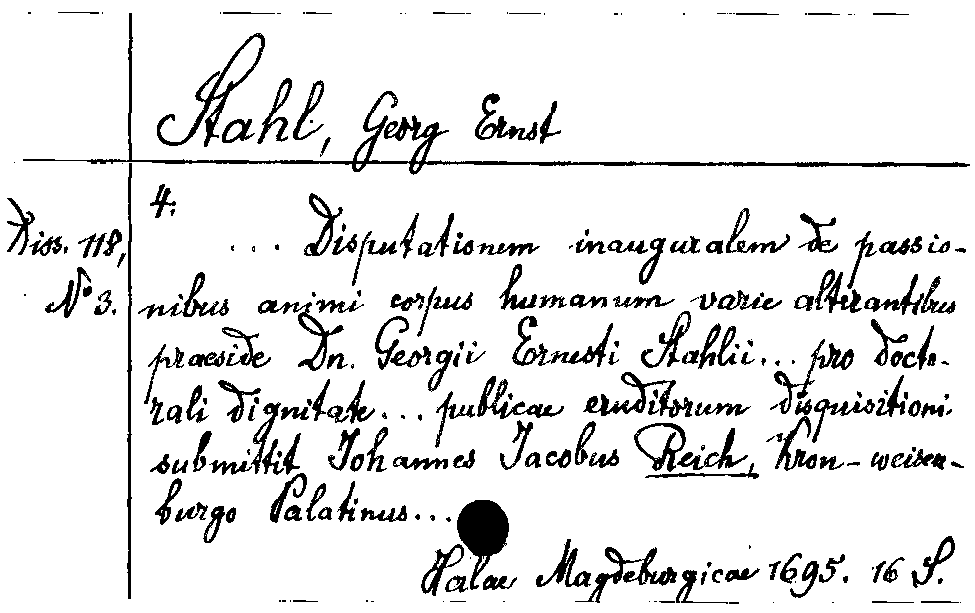 Stahl, Georg Ernst
4.
Diss. 118,
N° 3.
... Disputationem inauguralem de passio-
nibus animi corpus humanum varie alterantibus
praeside Dn. Georgii Ernesti Stahlii... pro docto-
rali dignitate... publicae eruditorum disquisitioni
submittit Johannes Jacobus Reich, Kron-weisen-
burgo Palatinus...
Halae Magdeburgicae 1695. 16 S.